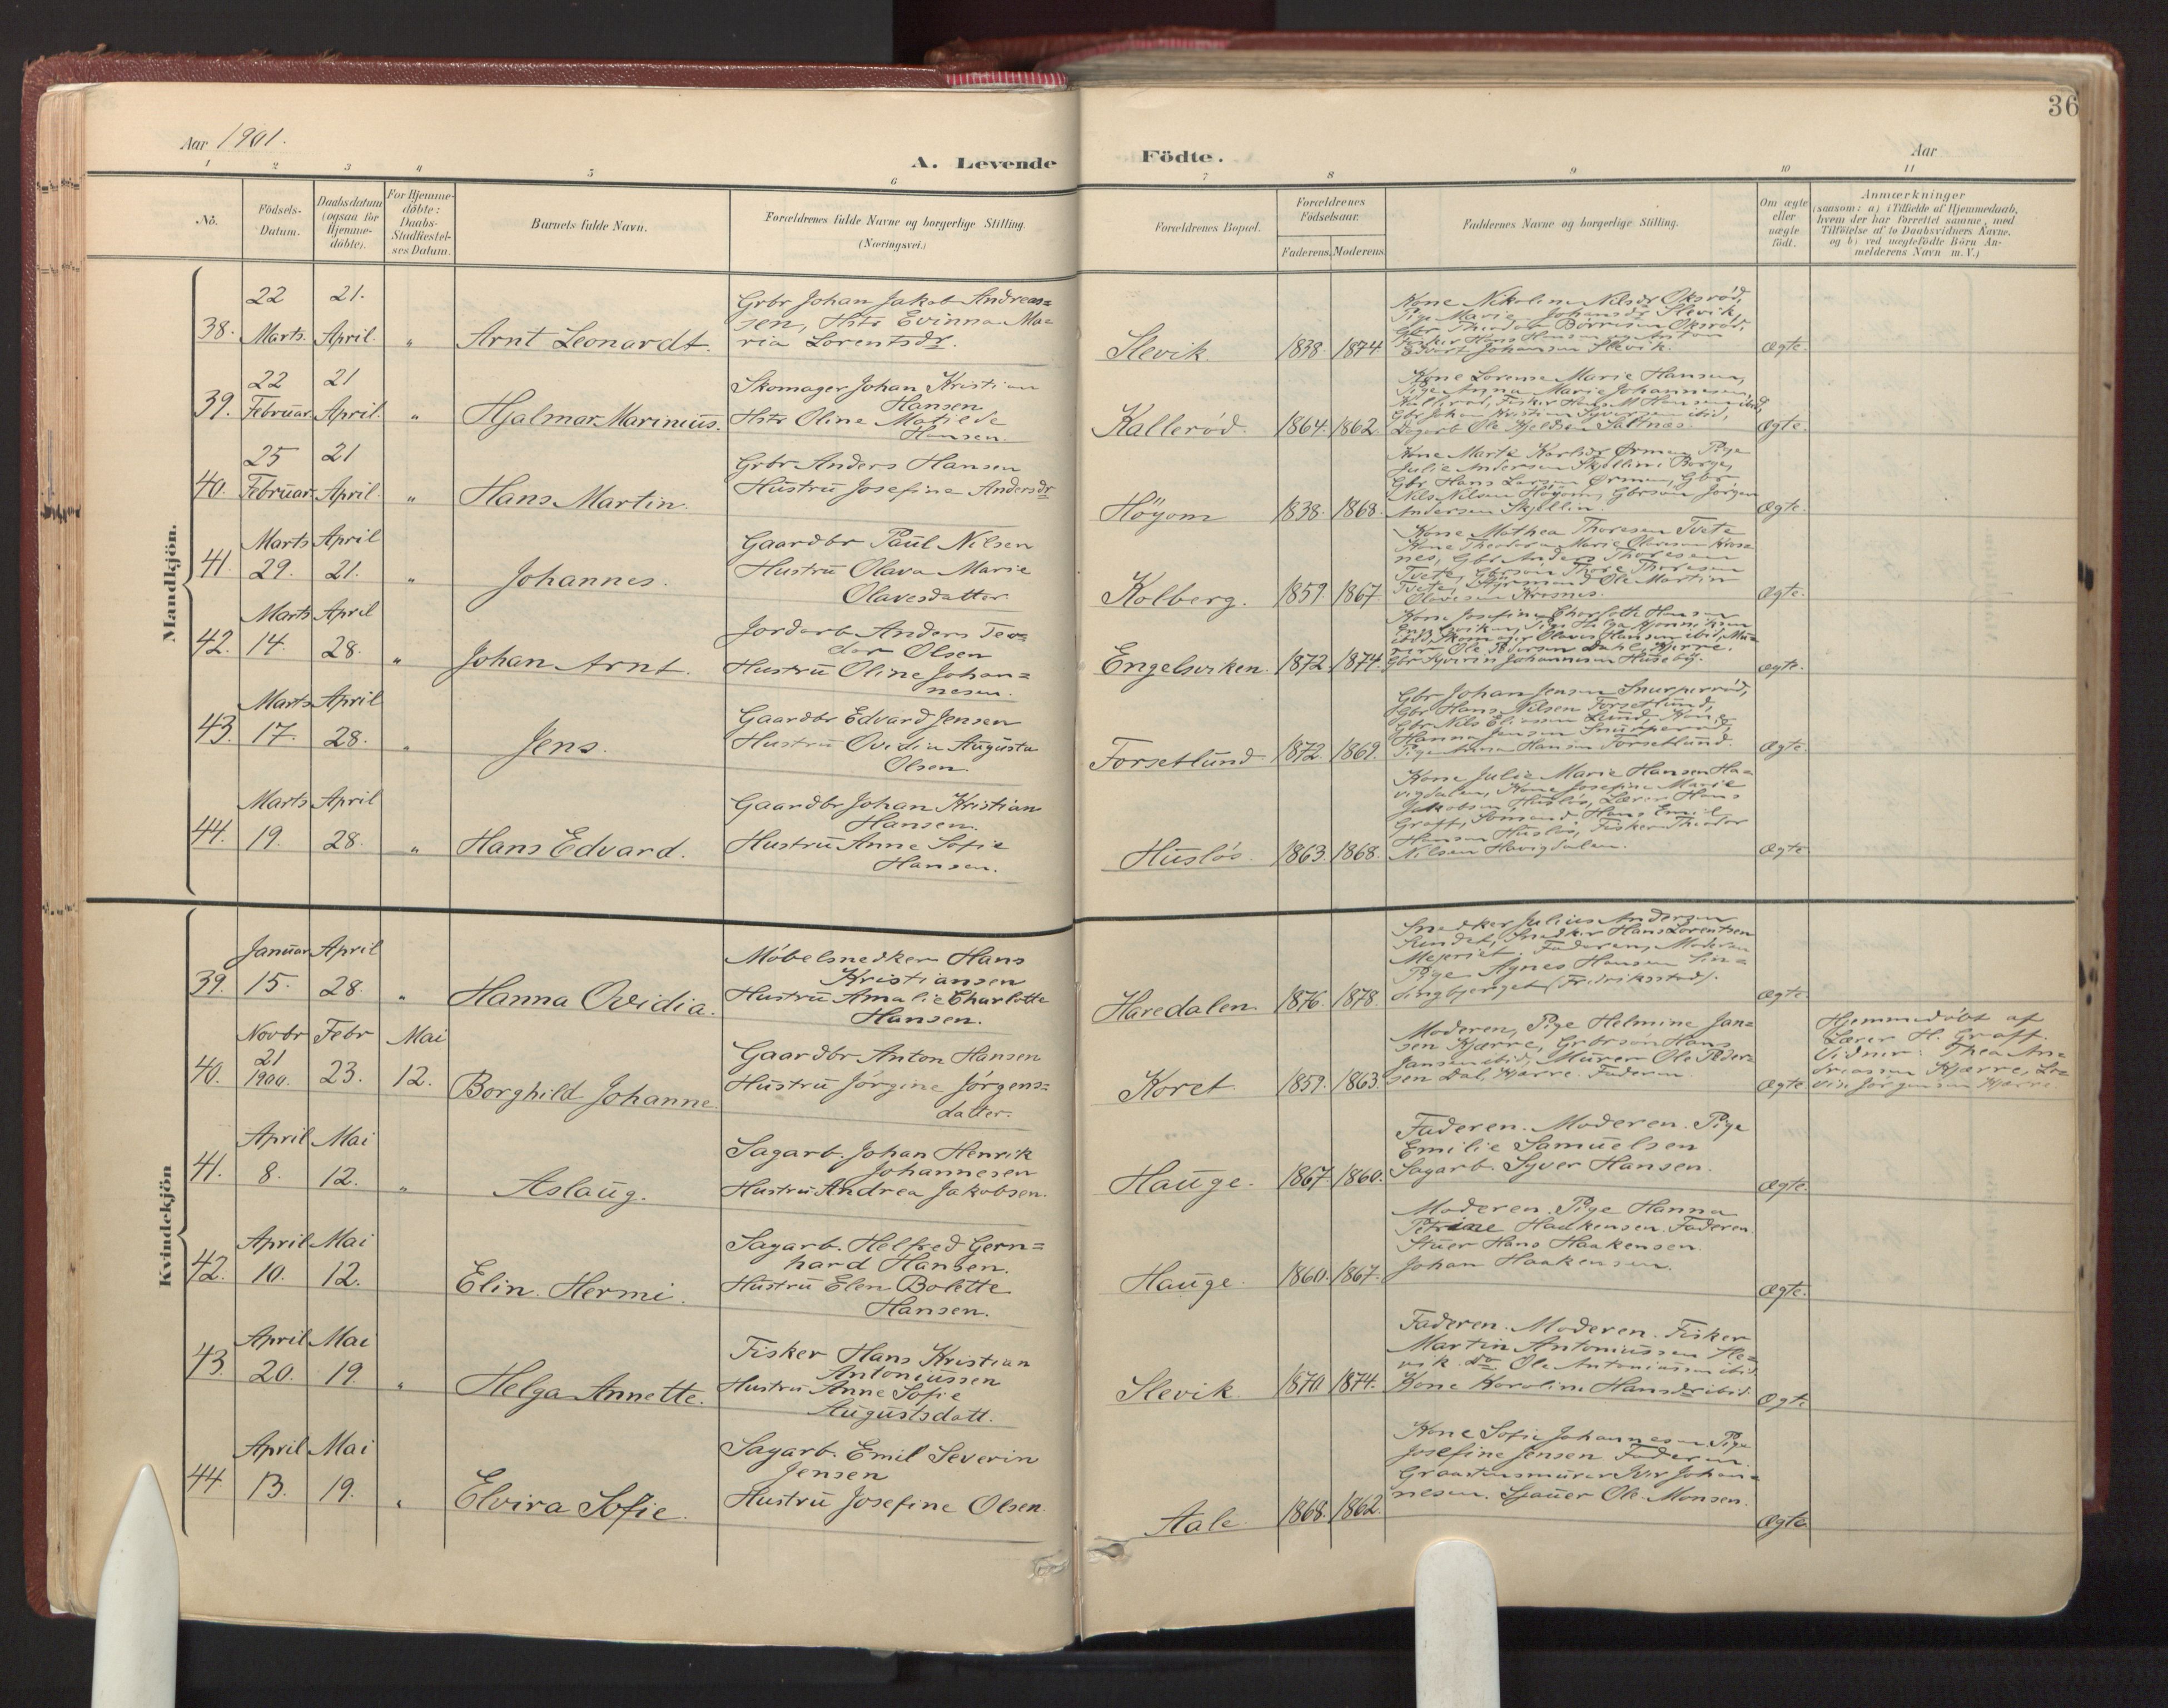 36
Aar 1901.
A. Levende Födte.
Aar
1 2 3 4 5 6 7 8 9 10 11
No.
Födsels-
Datum.
Daabsdatum
(ogsaa for
Hjemme-
döbte).
For Hjemme-
döbte:
Daabs-
Stadfæstel-
ses Datum.
Barnets fulde Navn.
Forældrenes fulde Navne og borgerlige Stilling.
(Næringsvei.)
Forældrenes Bopæl.
Forældrenes
Födselsaar.
Faderens. Moderens.
Faddernes Navne og borgerlige Stilling.
Om ægte
eller
uægte
födt.
Anmærkninger
(saasom: a) i Tilfælde af Hjemmedaab,
hvem der har forrettet samme, med
Tilföielse af to Daabsvidners Navne,
og b) ved uægtefödte Börn An-
melderens Navn m. V.)
Mandkjön.
38. 22 Marts. 21. April. "
Arnt Leonardt.
Grbr Johan Jakob Andreas=
sen, Hstr Evinna Ma=
ria Lorentsdr.
Slevik. 1838. 1874
Kone Nikoline Nilsdr Oksrød,
Pige Marie Johansdr Slevik,
Gbr Theodor Børresen Oksrød,
Fisker Hans Hansen og Anton
Edvart Johansen Slevik.
Ægte.
39. 22 Februar. 21 April. "
Hjalmar Marinius.
Skomager Johan Kristian
Hansen
Hstr Oline Matilde
Hansen.
Kallerød. 1864. 1862.
Kone Lorense Marie Hansen,
Pige Anna Marie Johannesen,
Kallerød, Fisker Hans M Hansen ibid,
Gbr Johan Kristian Syversen ibid,
Dagarb Ole Kjeldsen Saltnæs.
Ægte.
40. 25 Februar. 21 April. "
Hans Martin.
Grbr Anders Hansen
Hustru Josefine Andersdr
Höyom 1838. 1868.
Kone Marte Karlsdr Ørmen Pige
Julie Andersen Skjellin Borge,
Gbr Hans Larsen Ørmen, Gbr
Nils Nilsen Höyom, Gbrsøn Jørgen
Andersen Skjellin.
Ægte.
41. Marts 29. April 21. "
Johannes.
Gaardbr Paul Nilsen
Hustru Olava Marie
Olavesdatter
Kolberg. 1859. 1867.
Kone Mathea Thoresen Tvete
Kone Theodora Marie Olavesen Krose
nes, Gbr Anders Thoresen
Tvete, Gbrsøn Thore Thoresen
Tvete, Styrmand Ole Martin
Olavesen Krosnes.
Ægte.
42. Marts 14. April 28. "
Johan Arnt.
Jordarb Anders Teo=
dor Olsen
Hustru Oline Johan=
nesen.
Engelsviken. 1872 1874.
Kone Josefine Charlotte Hansen
Engelsviken, Pige Helga
ibid, Skomager Olaves Hansen ibid, Mu=
rer Ole Pedersen Dahl Kjærre.
Gbr Syverin Johannesen Huseby.
Ægte.
43. Marts 17. April 28. "
Jens.
Gaardbr Edvard Jensen
Hustru Ovedia Augusta
Olsen.
Forsetlund 1872. 1869.
Gbr Johan Jensen Snurperød,
Gbr Hans Nilsen Forsetlund,
Gbr Nils Eliassen Lund, Kone
Hanna Jensen Snurperød,
Pige Anna Hansen Forsetlund.
Ægte.
44. Marts 19. April 28. "
Hans Edvard.
Gaardbr Johan Kristian
Hansen.
Hustru Anne Sofie
Hansen.
Husløs. 1863. 1868.
Kone Julie Marie Hansen Ha=
vigdalen, Kone Josefine Marie
Jakobsen Husløs, Lærer Hans
Graff, Sømand Hans Emil
Hansen Husløs, Fisker Theodor
Nilsen Havigdalen.
Ægte
Kvindekjön
39. Januar 15. April 28. "
Hanna Ovidia.
Möbelsnedker Hans
Kristiansen
Hustru Amalie Charlotte
Hansen.
Haredalen 1876. 1878.
Snedker Julius Andersen
Sundet, Snedker Hans Lorentsen
Meieriet. Faderen, Moderen
Pige Agnes Hansen Sin=
singbjerget (Fredriksstad).
Ægte.
40. Novbr 21 1900. Febr 23. Mai 12.
Borghild Johanne.
Gaardbr Anton Hansen
Hustru Jørgine Jørgens=
datter.
Koret 1859. 1863.
Moderen, Pige Helmine Jan=
sen Kjærre, Grbrsøn Hans
Jansen ibid, Murer Ole Peder=
sen Dal, Kjærre. Faderen.
Ægte
Hjemmedöbt af
Lærer H. Graff.
Vidner: Thea An=
driassen Kjærre, Lo=
vise Jørgensen Kjærre
41. April 8. Mai 12. "
Aslaug.
Sagarb. Johan Henrik
Johannesen
Hustru Andrea Jakobsen.
Hauge. 1867. 1860.
Faderen. Moderen. Pige
Emilie Samuelsen
Sagarb. Syver Hansen.
Ægte.
42. April 10. Mai 12.
Elin. Hermi.
Sagarb. Helfred Gern=
hard Hansen.
Hustru Elen Bolette
Hansen.
Hauge. 1860. 1867.
Moderen. Pige Hanna
Petrine Haakensen. Faderen.
Stuer Hans Haakensen.
Johan Haakensen.
Ægte.
43. April 20. Mai 19. "
Helga Annette.
Fisker Hans Kristian
Antoniussen
Hustru Anne Sofie
Augustsdatt.
Slevik. 1870 1874.
Faderen. Moderen. Fisker
Martin Antoniussen Sle=
vik. do Ole Antoniussen ibid.
Kone Karoline Hansdr ibid.
Ægte
44 April 13. Mai 19. "
Elvira Sofie.
Sagarb. Emil Severin
Jensen
Hustru Josefine Olsen.
Aale. 1868. 1862.
Kone Sofie Johannesen Pige
Josefine Jensen Faderen.
Graastensmurer Iver Johan=
nesen. Sjauer Ole Monsen.
Ægte